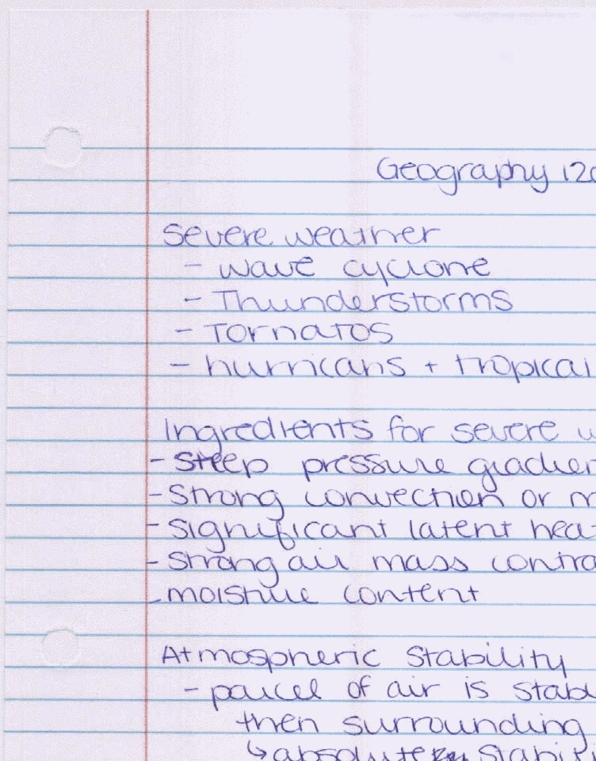 Geography 120
Severe weather
- wave cyclone
- Thunderstorms
- Tornatos
- hurricans + tropical
Ingredients for severe w
- Steep pressure gradien
- Strong convection or m
- Significant latent hea
- Strong air mass contra
- moisture content
Atmospheric Stability
- parcel of air is stabl
then surrounding
↳ absolute stabili